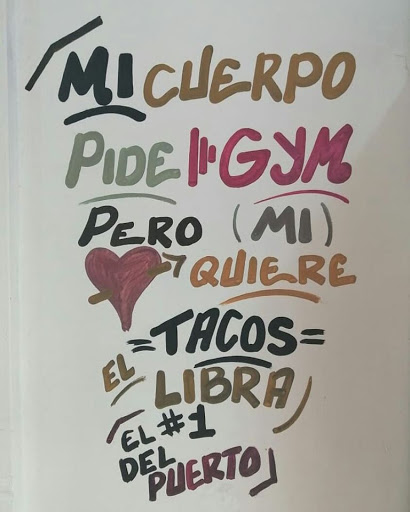 MI CUERPO
PIDE GYM
PERO (MI)
QUIERE
=TACOS=
EL LIBRA
EL #1
DEL
PUERTO